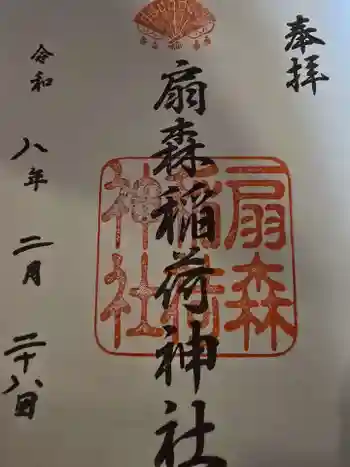 奉拝
扇森稲荷神社
扇森
稲荷
神社
令和八年二月二十八日